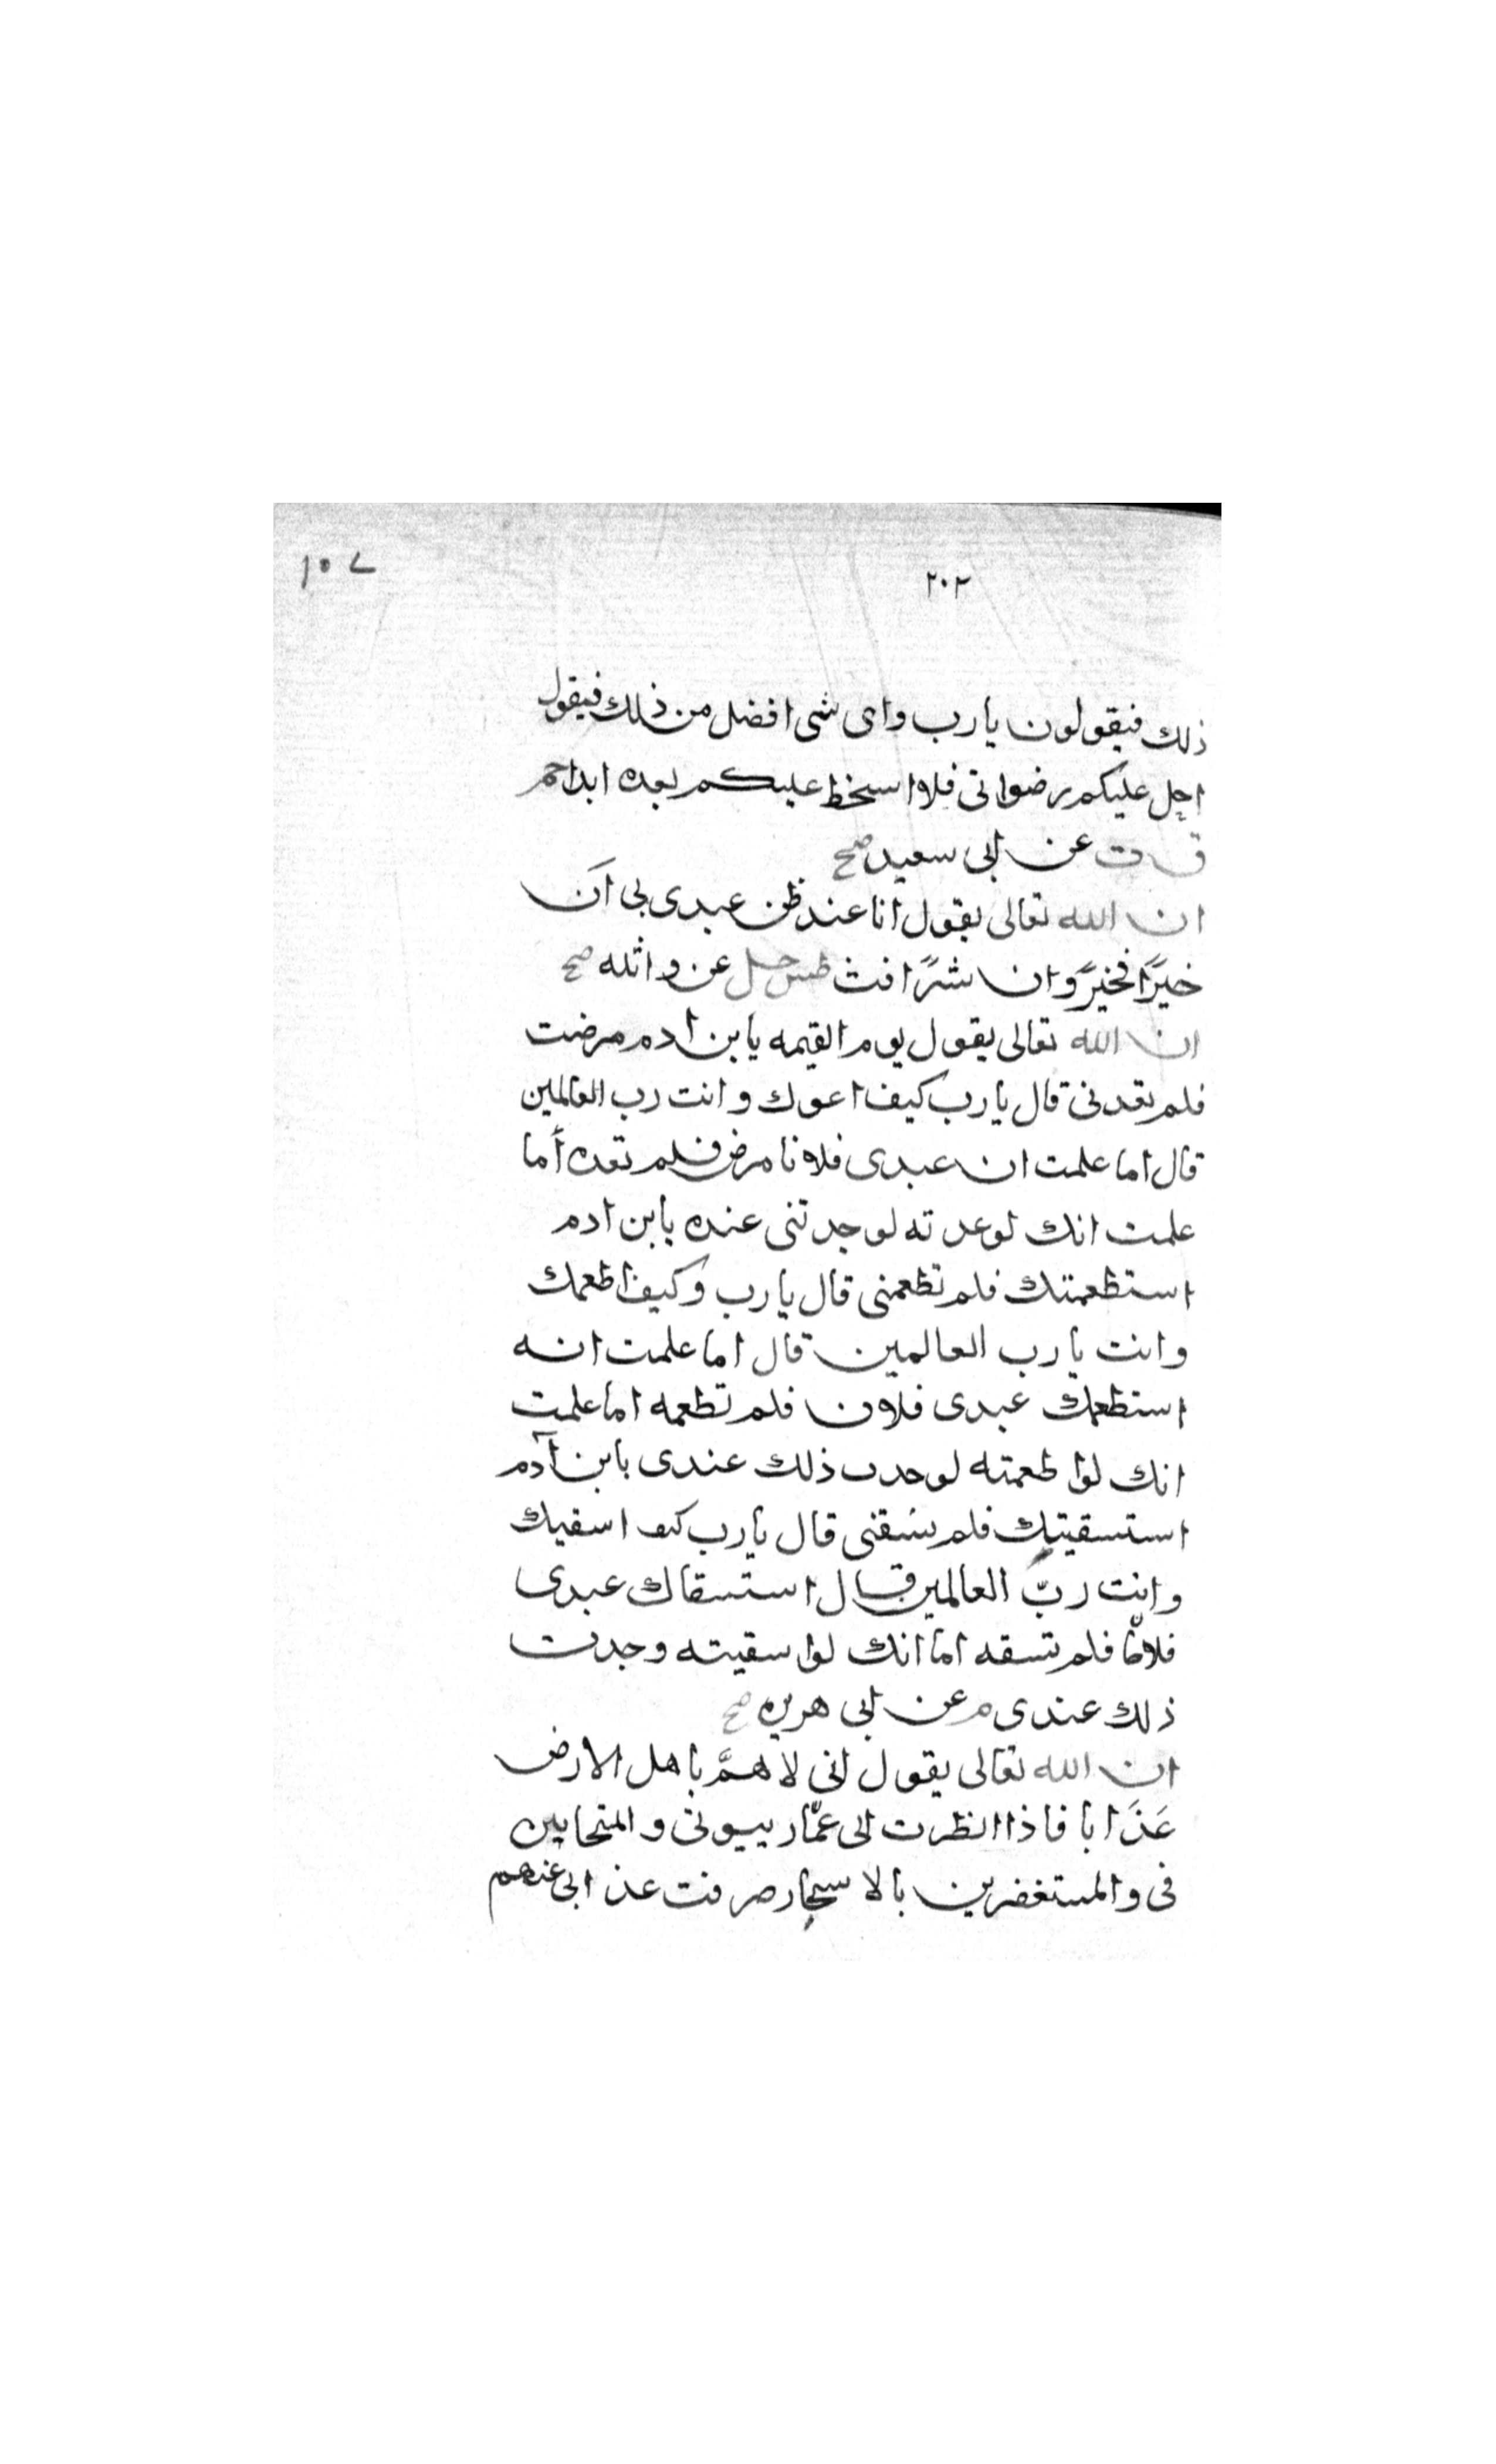 ١٠٧
٢٠٢
ذلك فيقولون يا رب واى شى افضل من ذلك فيقول
احل عليكم رضوانى فلا اسخط عليكم بعده ابدا حم
ق ت عن ابى سعيد صح
ان الله تعالى يقول انا عند ظن عبدى بى اَن
خيرًا فخيرً وان شرًا فش طس حل عن واثله صح
ان الله تعالى يقول يوم القيمه يا بن ادم مرضت
فلم تعدنى قال يا رب كيف اعوك وانت رب العالمين
قال اما علمت ان عبدى فلانا مرض فلم تعده أما
علمت انك لو عدته لوجدتنى عنده يابن ادم
استطعمتك فلم تطعمنى قال يا رب وكيف اطعمك
وانت يا رب العالمين قال اما علمت انه
استطعمك عبدى فلان فلم تطعمه اما علمت
انك لو اطعمته لوجدت ذلك عندى يابن آدم
استسقيتك فلم تسقنى قال يا رب كيف اسقيك
وانت ربّ العالمين قال استسقاك عبدى
فلانًا فلم تسقه اما انك لو اسقيته وجدت
ذلك عندى م عن ابى هريره صح
ان الله تعالى يقول انى لا همَّ باهل الارض
عَذَابا فاذا انظرت الى عمّار بيوتى والمتحابين
فى والمستغفرين بالاسحار صرفت عذابى عنهم